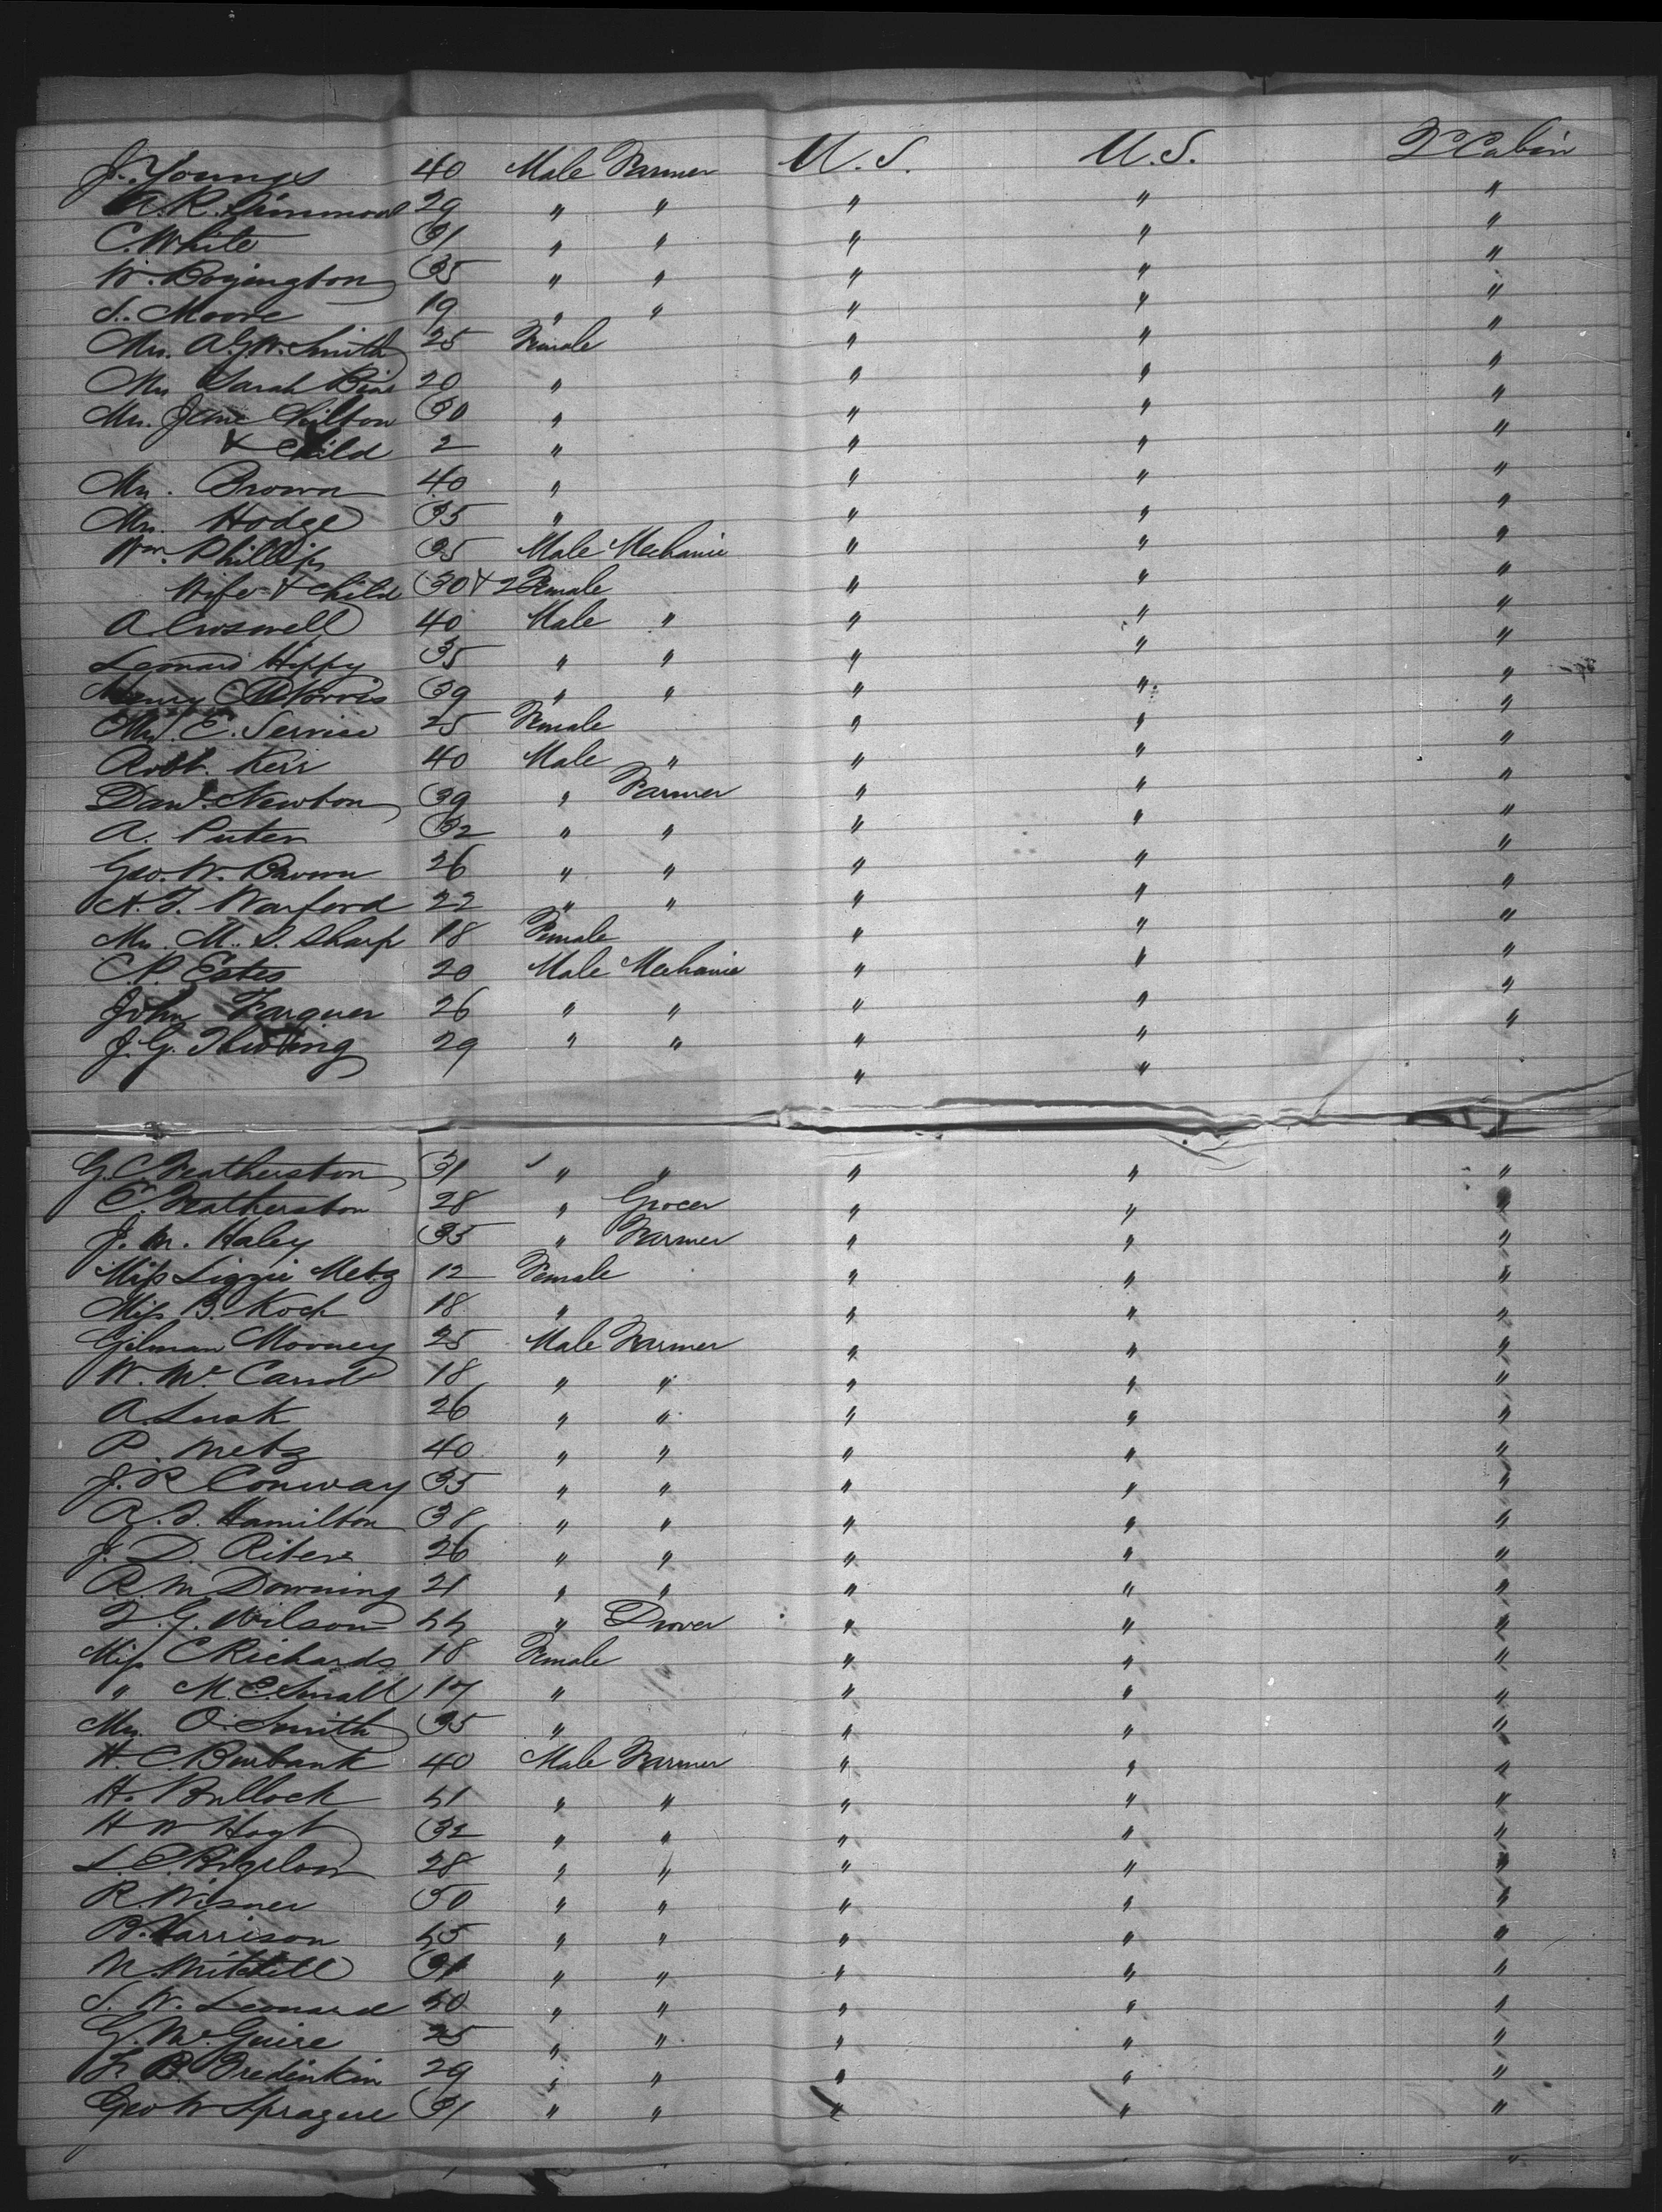 J. Youngs 40 Male Farmer U.S. U.S. 2d Cabin
A.R. Simmons 29 " " " " "
C. White 31 " " " " "
W. Boyington 35 " " " " "
S. Moore 19 " " " " "
Mrs. A.G.W. Smith 25 Female " " "
Mrs Sarah 20 " " " "
Mrs. Jane Chilton 30 " " " "
& Child 2 " " " "
Mrs. Brown 40 " " " "
Mrs. Hodge 35 " " " "
Wm. Phillips 35 Male Mechanic " " "
Wife & Child 30 & 2 Female " " "
A. Croswell 40 Male " " " "
Leonard Hippy 35 " " " " "
Henry C. Norris 39 " " " " "
Mrs. E. Service 25 Female " " "
Robt. Kerr 40 Male " " " "
Danl. Newton 39 " Farmer " " "
A. Puter 32 " " " " "
Geo. W. Brown 26 " " " " "
A.T. Warford 22 " " " " "
Mrs. M. S. Sharp 18 Female " " "
C.P. Estes 20 Male Mechanic " " "
John Farquer 26 " " " " "
J.G. 29 " " " " "
" "
G.C. Featherston 31 " " " " "
E. Featherston 28 " Grocer " " "
J. M. Haley 35 " Farmer " " "
Miss Lizzie Metz 12 Female " " "
Miss B. Koch 18 " " " "
Gilman Mooney 25 Male Farmer " " "
W. Mc Cand 18 " " " " "
A. Lusk 26 " " " " "
P. Metz 40 " " " " "
J.R. Conway 35 " " " " "
A.T. Hamilton 38 " " " " "
J. D. Riter 26 " " " " "
R. M Downing 21 " " " " "
T.G. Wilson 44 " Drover " " "
Miss C Richards 18 Female " " "
" M.E. Small 17 " " " "
Mrs. O. Smith 35 " " " "
H. C. Burbank 40 Male Farmer " " "
H. Bullock 41 " " " " "
H W Hoyt 32 " " " " "
L. E. Bigelow 28 " " " " "
R. Wisner 50 " " " " "
B. Harrison 45 " " " " "
M. Mitchell 31 " " " " "
S. W. Leonard 40 " " " " "
G. Mc Guire 25 " " " " "
F. B. Fredenkin 29 " " " " "
Geo W Sprague 31 " " " " "
"